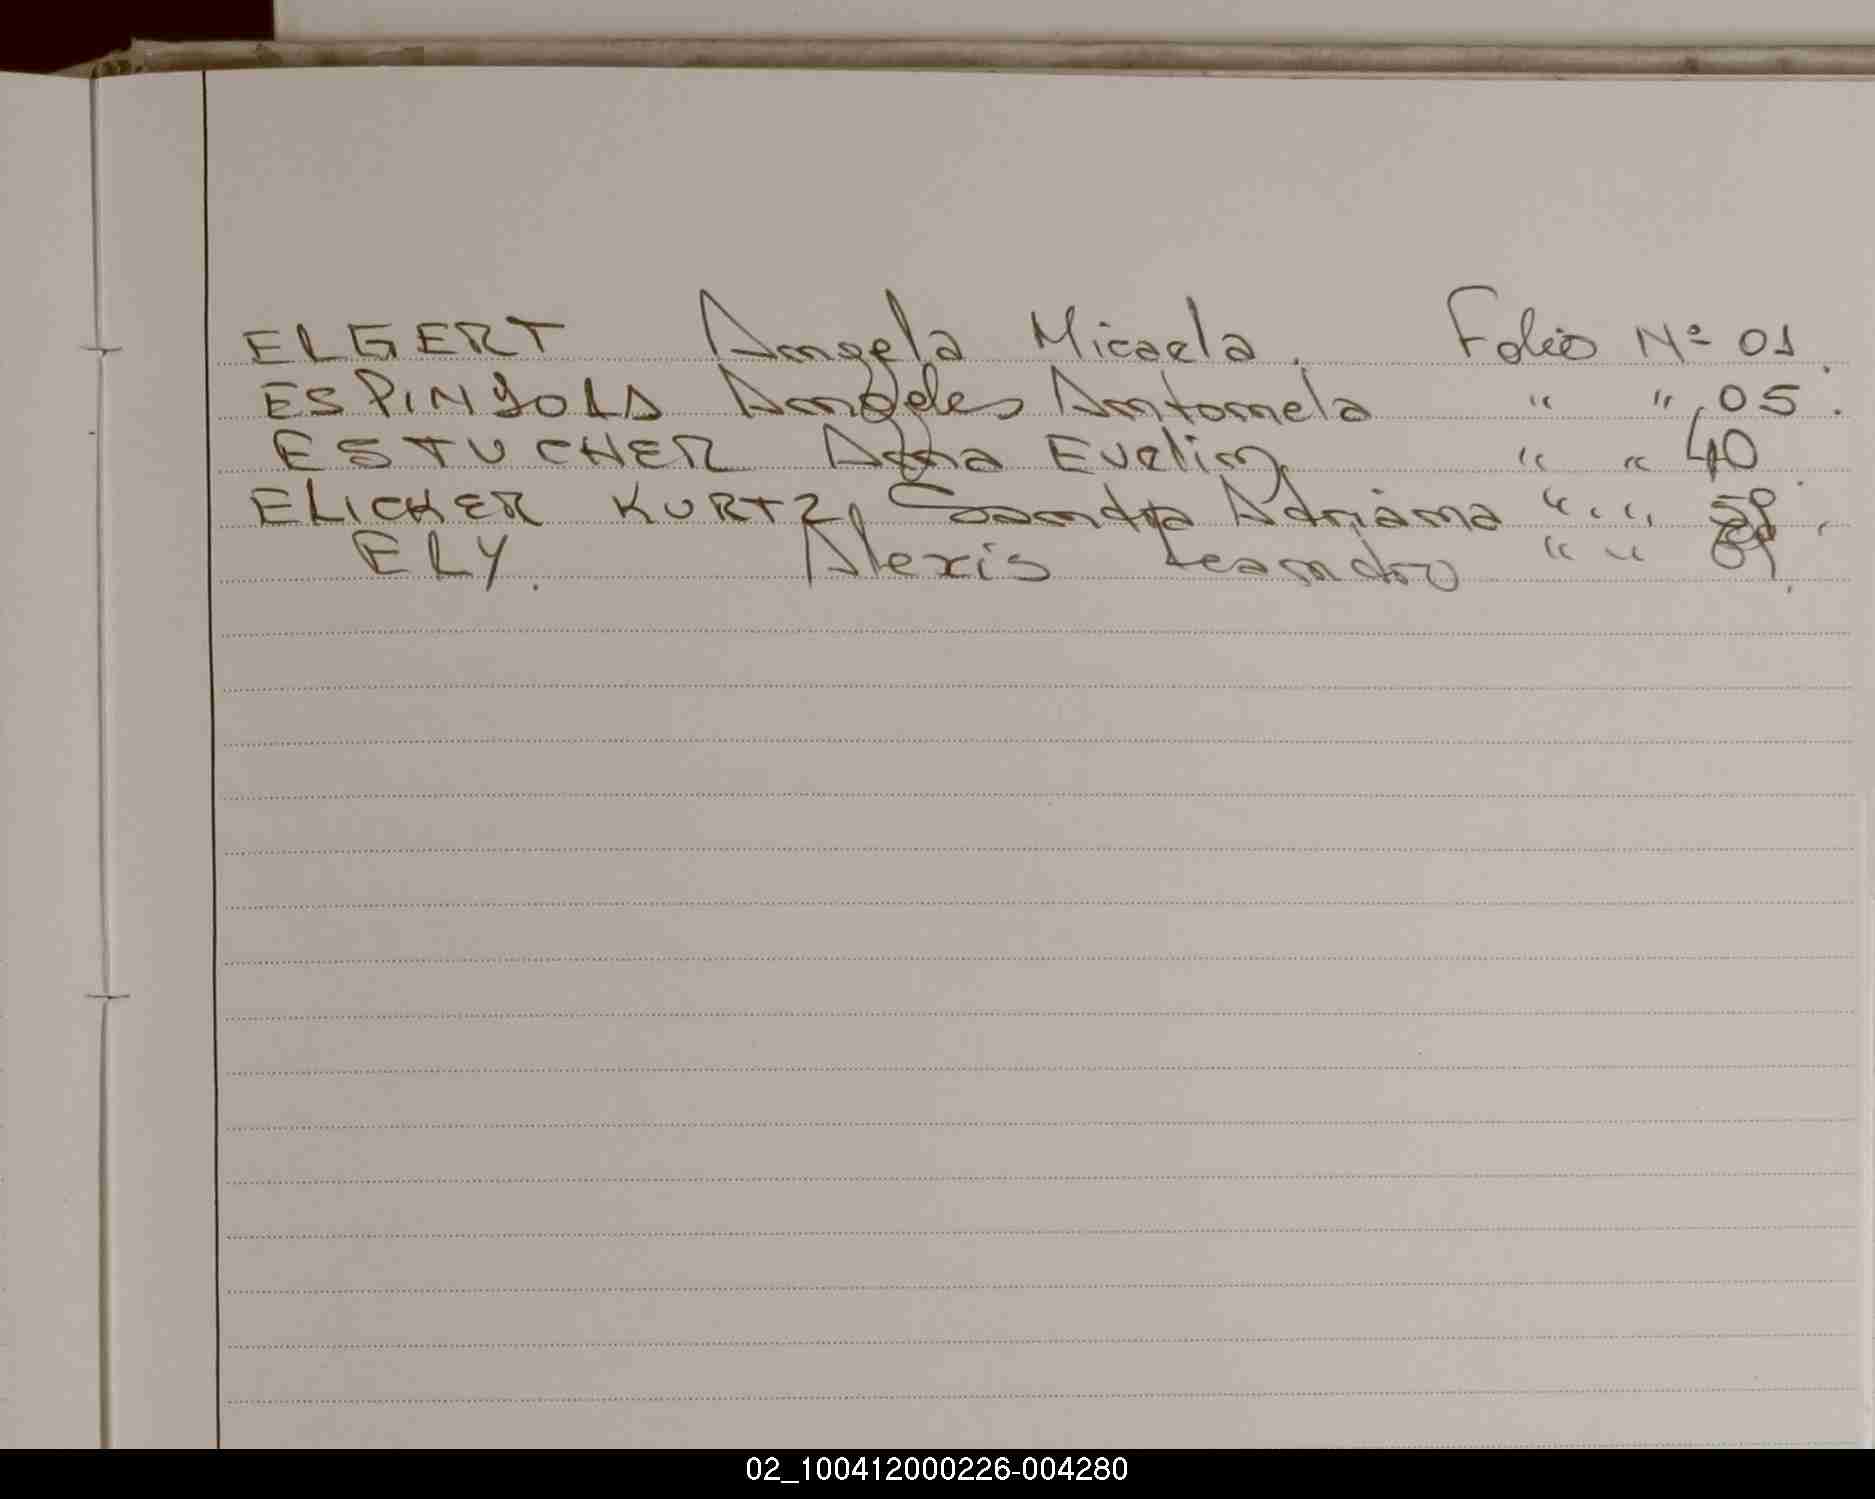 ELGERT Angela Micaela. Folio Nº 01.
ESPINDOLA Angeles Antonela " " 05.
ESTUCHER Evelin " " 40.
ELICKER KURTZ, Sandra Adriana " " 59.
ELY. Alexis Leandro " "
02_100412000226-004280